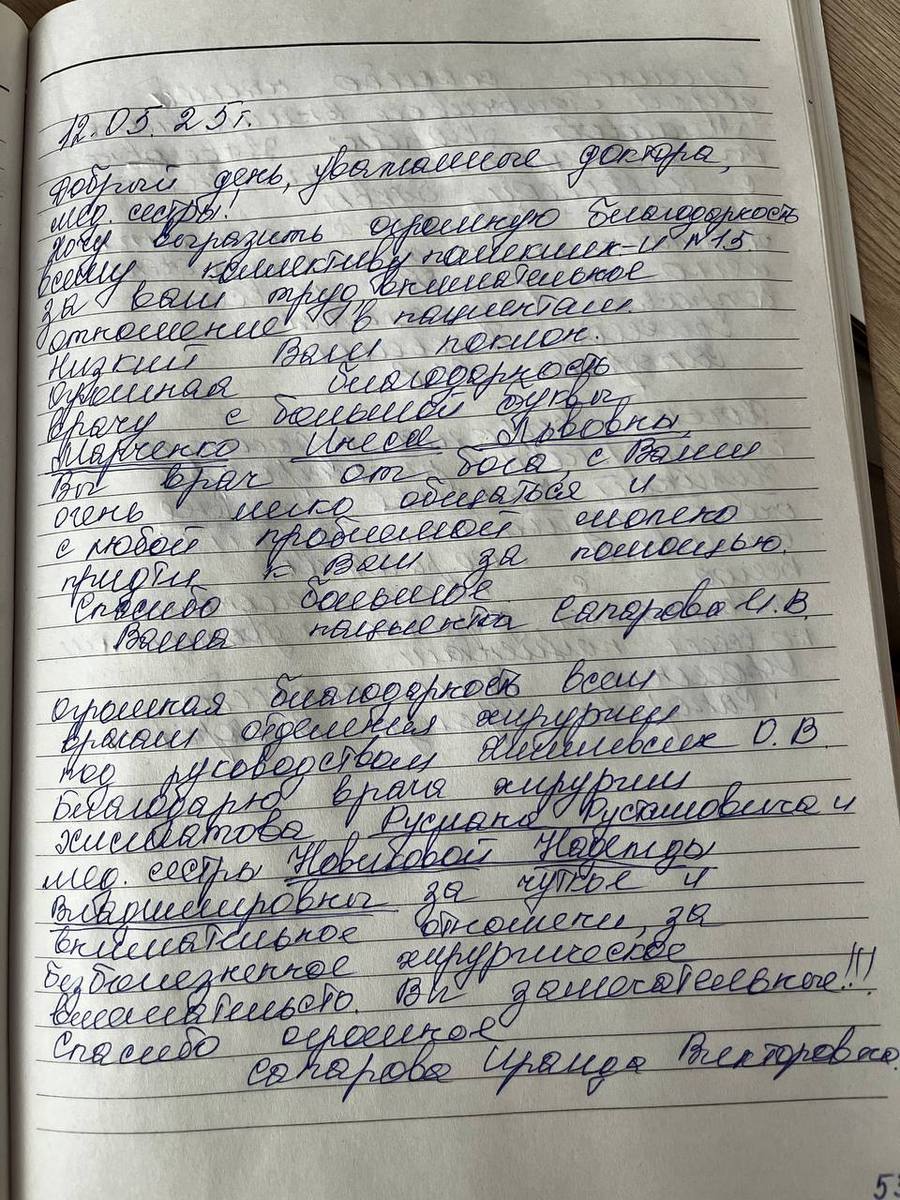 12.05.25г.
Добрый день, уважаемые доктора,
мед. сестры!
Хочу выразить огромную благодарность
всему коллективу №15
за ваш труд, внимательное
отношение к пациентам.
Низкий Вам поклон.
Огромная благодарность
врачу с большой буквы
Марченко Инесса Львовны,
Вы врач от бога, с Вами
очень легко общаться и
с любой проблемой можно
придти к Вам за помощью.
Спасибо большое
Ваша пациентка Сапарова И.В.
Огромная благодарность всем
врачам отделения хирургии
под руководством О.В.
Благодарю врача хирургии
Хисматова Руслана Рустамовича и
мед. сестры Новиковой Надежды
Владимировны за чуткое и
внимательное отношени, за
безболезненное хирургическое
Вы замечательные!!!
Спасибо огромное
Сапарова Ираида Викторовна.